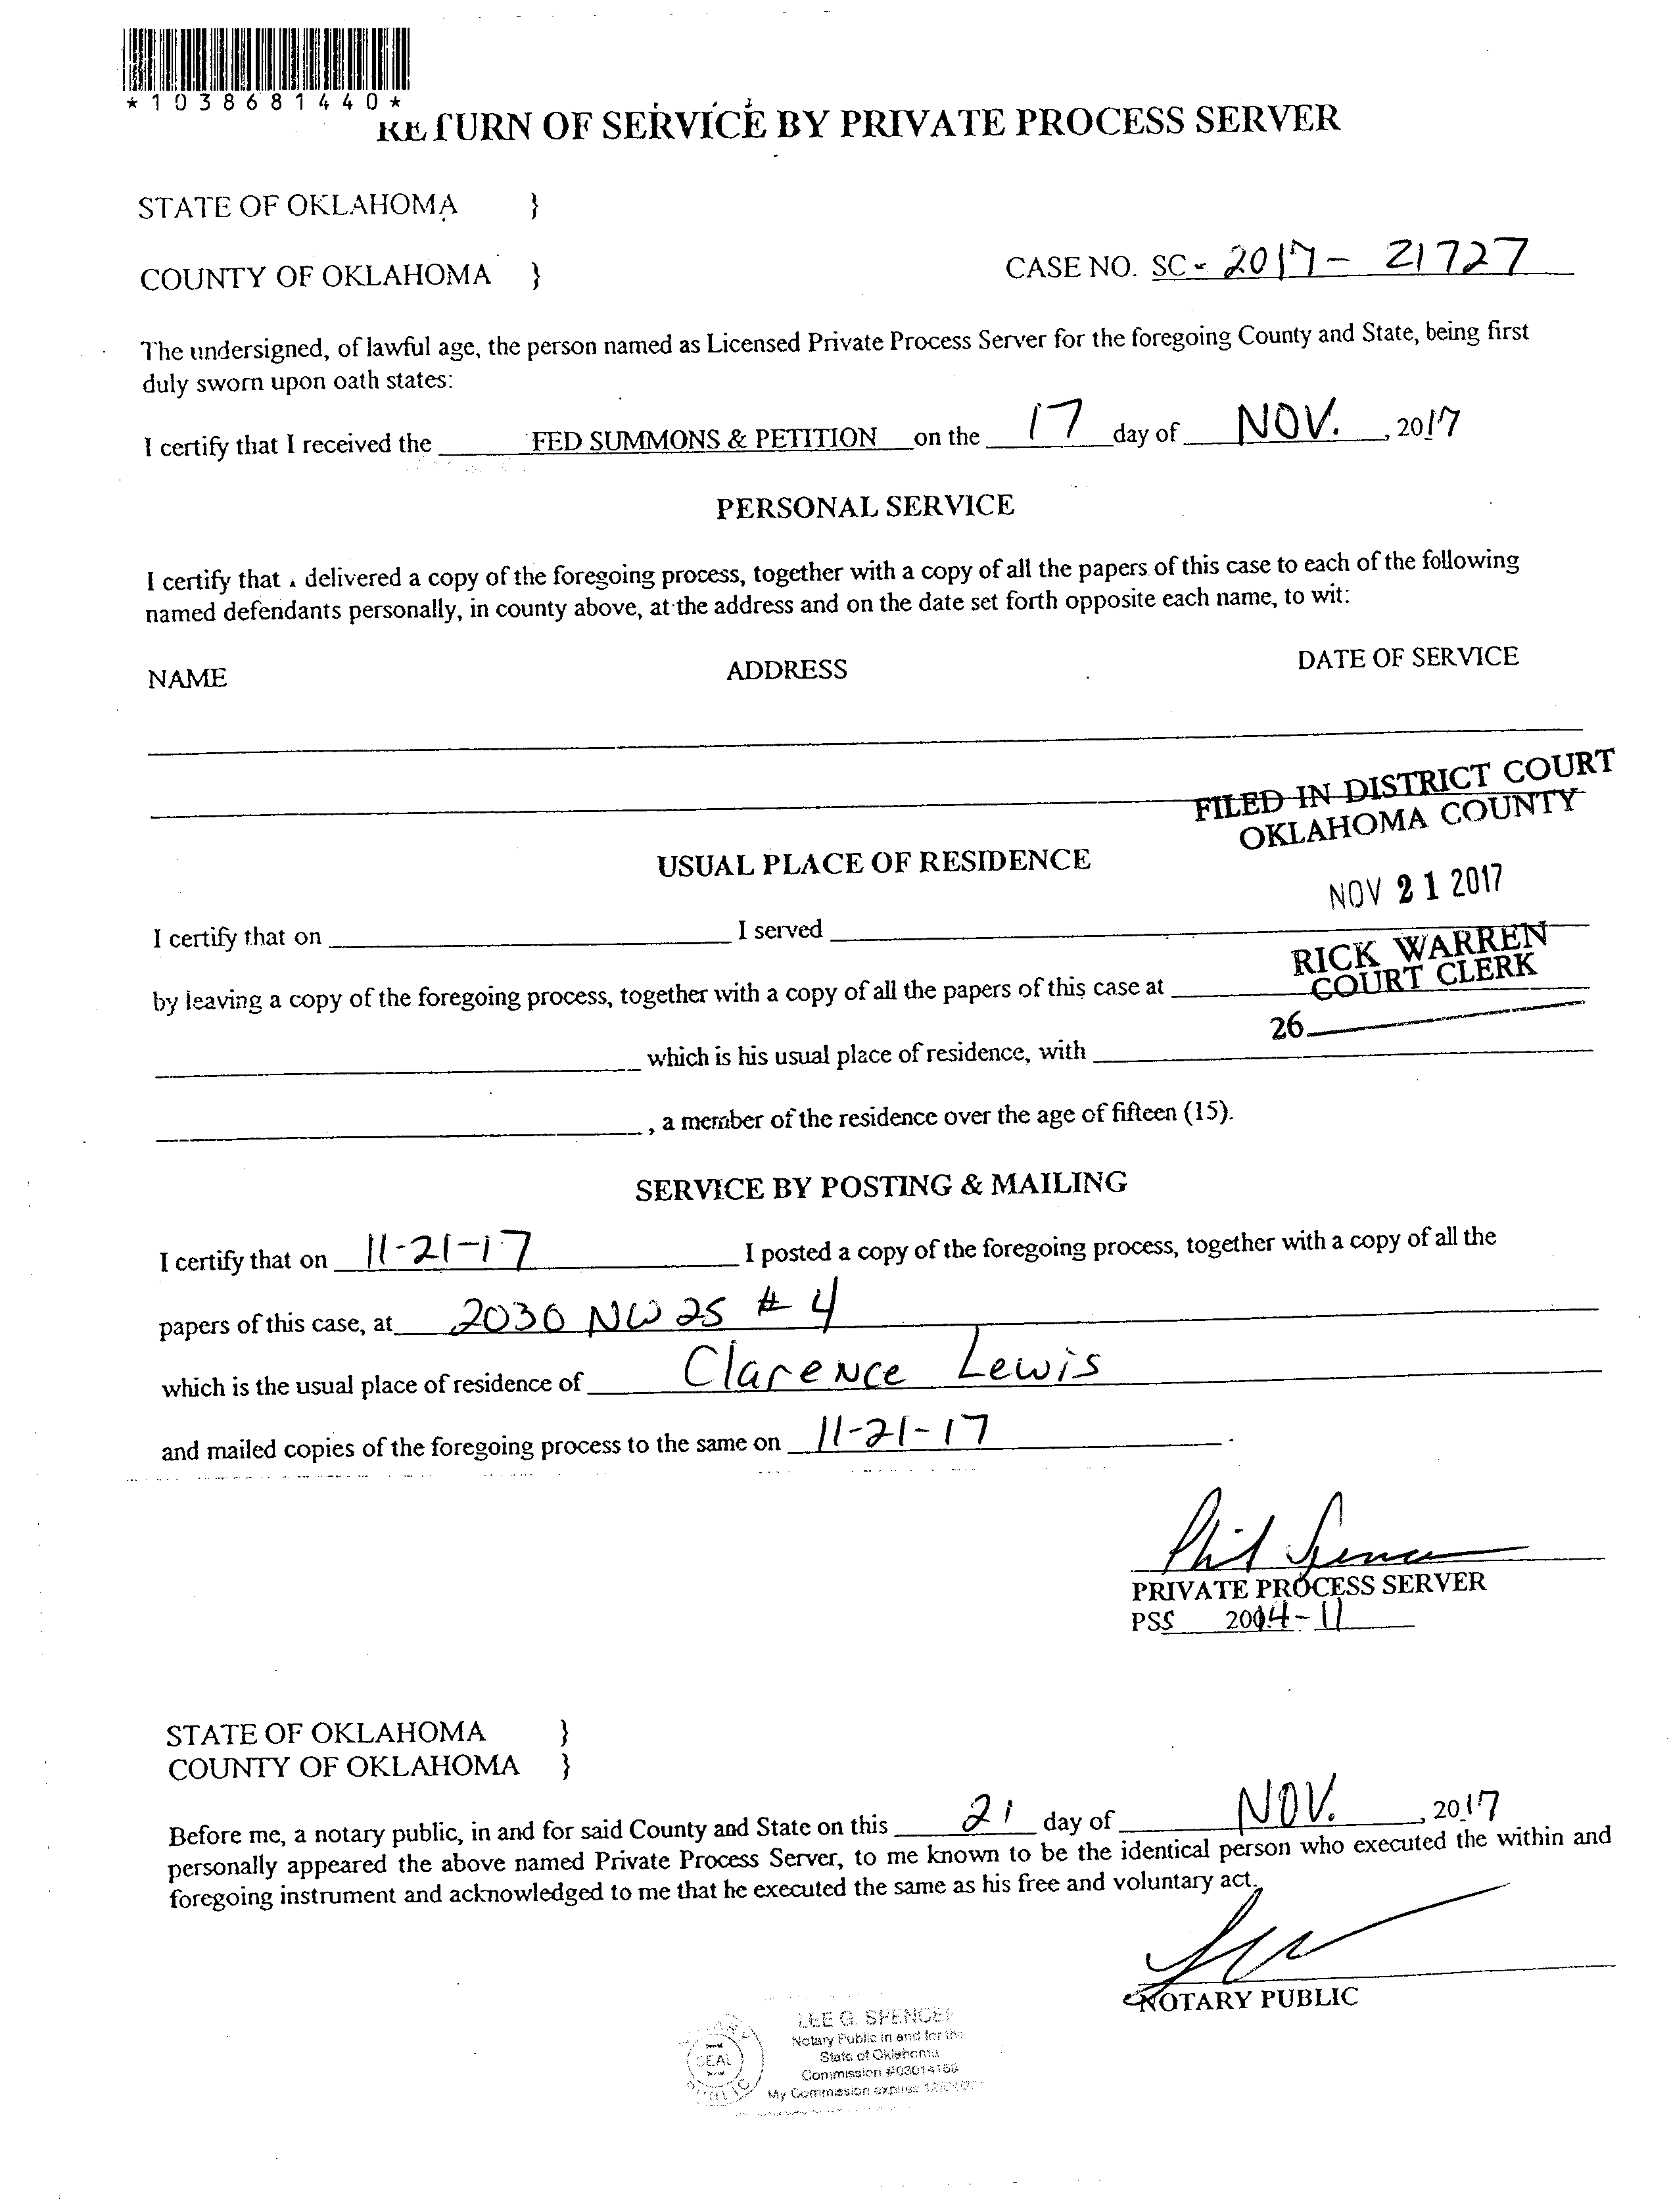 *1038681440*
RETURN OF SERVICE BY PRIVATE PROCESS SERVER
STATE OF OKLAHOMA }
COUNTY OF OKLAHOMA } CASE NO. SC - 2017 - 21727
The undersigned, of lawful age, the person named as Licensed Private Process Server for the foregoing County and State, being first
duly sworn upon oath states:
I certify that I received the FED SUMMONS & PETITION on the 17 day of NOV. , 2017
PERSONAL SERVICE
I certify that delivered a copy of the foregoing process, together with a copy of all the papers of this case to each of the following
named defendants personally, in county above, at the address and on the date set forth opposite each name, to wit:
NAME ADDRESS DATE OF SERVICE
FILED IN DISTRICT COURT
OKLAHOMA COUNTY
USUAL PLACE OF RESIDENCE
NOV 21 2017
I certify that on I served
RICK WARREN
COURT CLERK
by leaving a copy of the foregoing process, together with a copy of all the papers of this case at
26
which is his usual place of residence, with
, a member of the residence over the age of fifteen (15).
SERVICE BY POSTING & MAILING
I certify that on 11-21-17 I posted a copy of the foregoing process, together with a copy of all the
papers of this case, at 2030 NW 25 # 4
which is the usual place of residence of Clarence Lewis
and mailed copies of the foregoing process to the same on 11-21-17 .
Phil Spencer
PRIVATE PROCESS SERVER
PSS 2014-11
STATE OF OKLAHOMA }
COUNTY OF OKLAHOMA }
Before me, a notary public, in and for said County and State on this 21 day of NOV. , 2017
personally appeared the above named Private Process Server, to me known to be the identical person who executed the within and
foregoing instrument and acknowledged to me that he executed the same as his free and voluntary act.
NOTARY PUBLIC
LEE G. SPENCER
Notary Public in and for the
SEAL
State of Oklahoma
Commission #03014158
My Commission expires